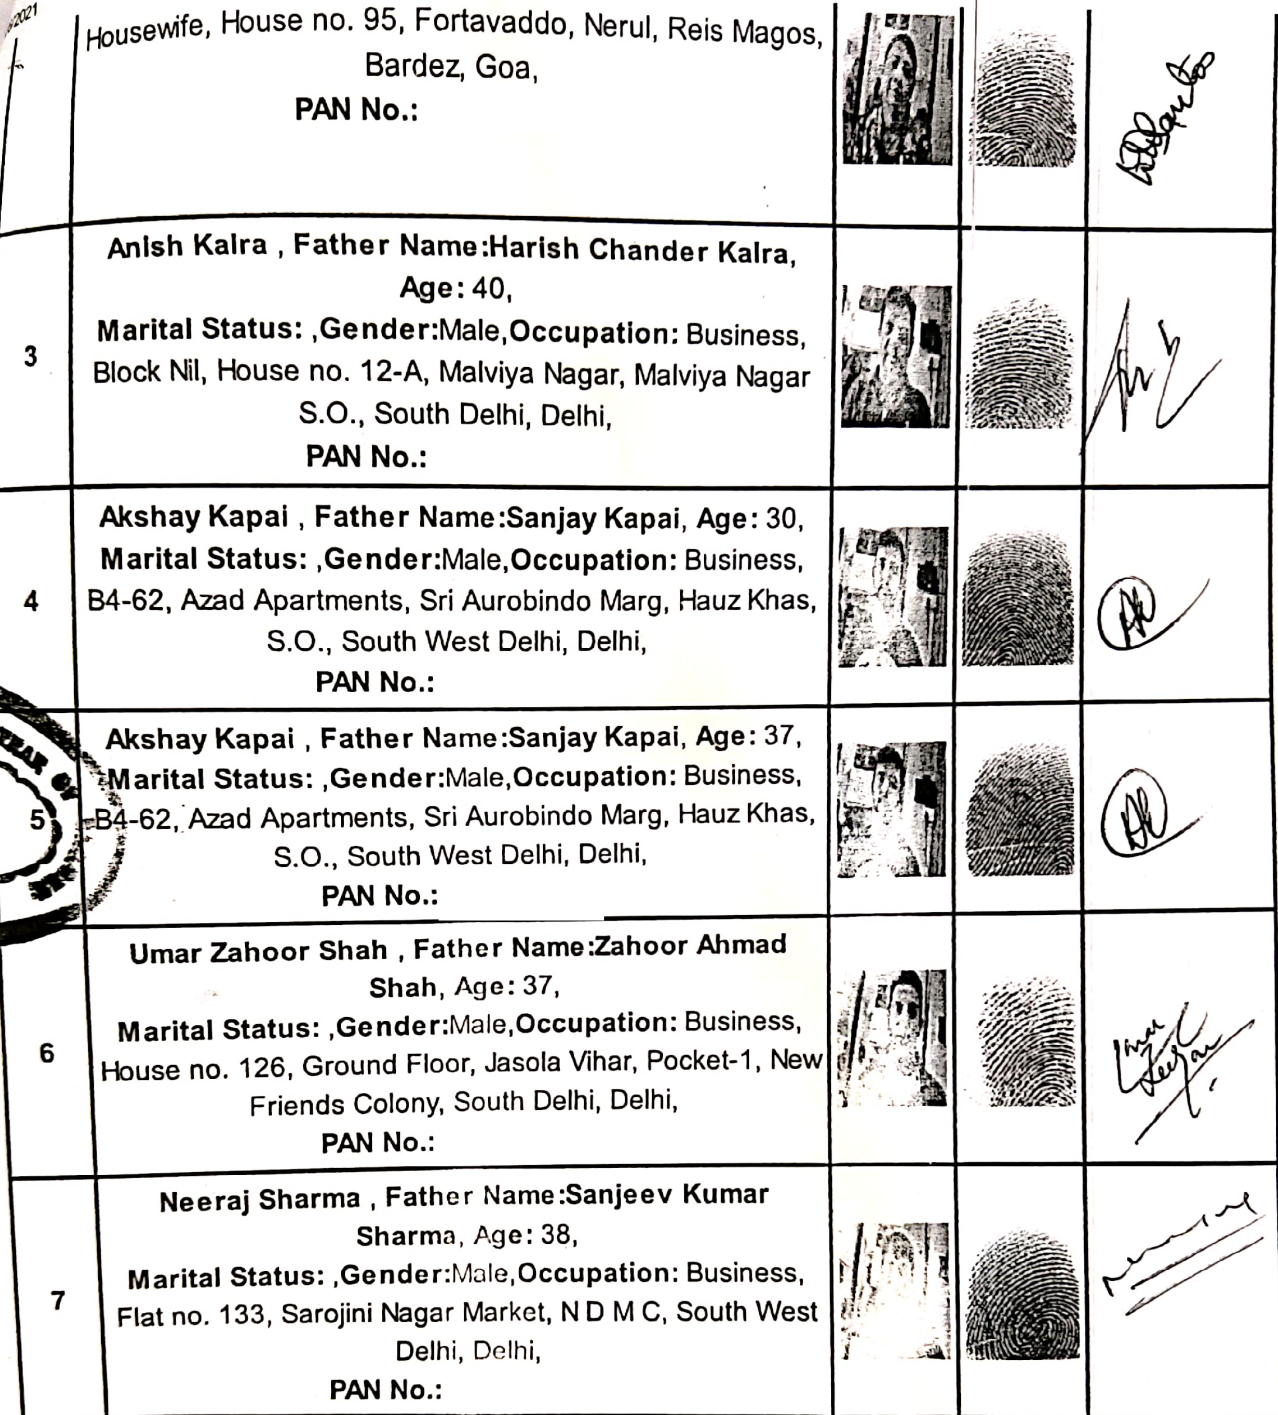 2021
Housewife, House no. 95, Fortavaddo, Nerul, Reis Magos,
Bardez, Goa,
PAN No.:
Anish Kalra , Father Name:Harish Chander Kalra,
Age: 40,
3
Marital Status: ,Gender:Male,Occupation: Business,
Block Nil, House no. 12-A, Malviya Nagar, Malviya Nagar
S.O., South Delhi, Delhi,
PAN No.:
Akshay Kapai , Father Name:Sanjay Kapai, Age: 30,
Marital Status: ,Gender:Male,Occupation: Business,
4
B4-62, Azad Apartments, Sri Aurobindo Marg, Hauz Khas,
S.O., South West Delhi, Delhi,
PAN No.:
Akshay Kapai , Father Name:Sanjay Kapai, Age: 37,
Marital Status: ,Gender:Male,Occupation: Business,
5
B4-62, Azad Apartments, Sri Aurobindo Marg, Hauz Khas,
S.O., South West Delhi, Delhi,
PAN No.:
Umar Zahoor Shah , Father Name:Zahoor Ahmad
Shah, Age: 37,
Marital Status: ,Gender:Male,Occupation: Business,
6
House no. 126, Ground Floor, Jasola Vihar, Pocket-1, New
Friends Colony, South Delhi, Delhi,
PAN No.:
Neeraj Sharma , Father Name:Sanjeev Kumar
Sharma, Age: 38,
Marital Status: ,Gender:Male,Occupation: Business,
7
Flat no. 133, Sarojini Nagar Market, N D M C, South West
Delhi, Delhi,
PAN No.: